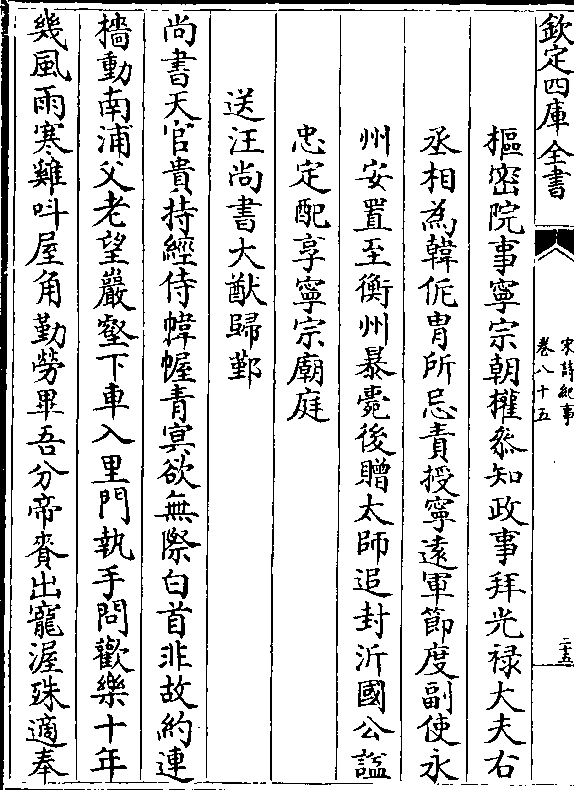 欽定四庫全書
宋詩紀事
卷八十五
二十五
樞密院事寧宗朝權叅知政事拜光禄大夫右
丞相為韓侂胄所忌責授寧逺軍節度副使永
州安置至衡州暴薨後贈太師追封沂國公諡
忠定配享寧宗廟庭
送汪尚書大猷歸鄞
尚書天官貴持經侍幃幄青㝠欲無際白首非故約連
檣動南浦父老望巖壑下車入里門執手問歡樂十年
幾風雨寒雞呌屋角勤勞畢吾分帝賚出寵渥殊適奉